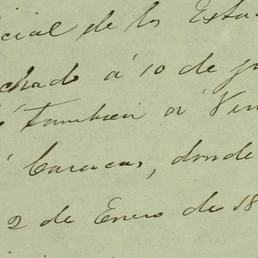 cial de los Esta
chado á 10 de ju
también á Ven
Caracas, donde
2 de Enero de 18